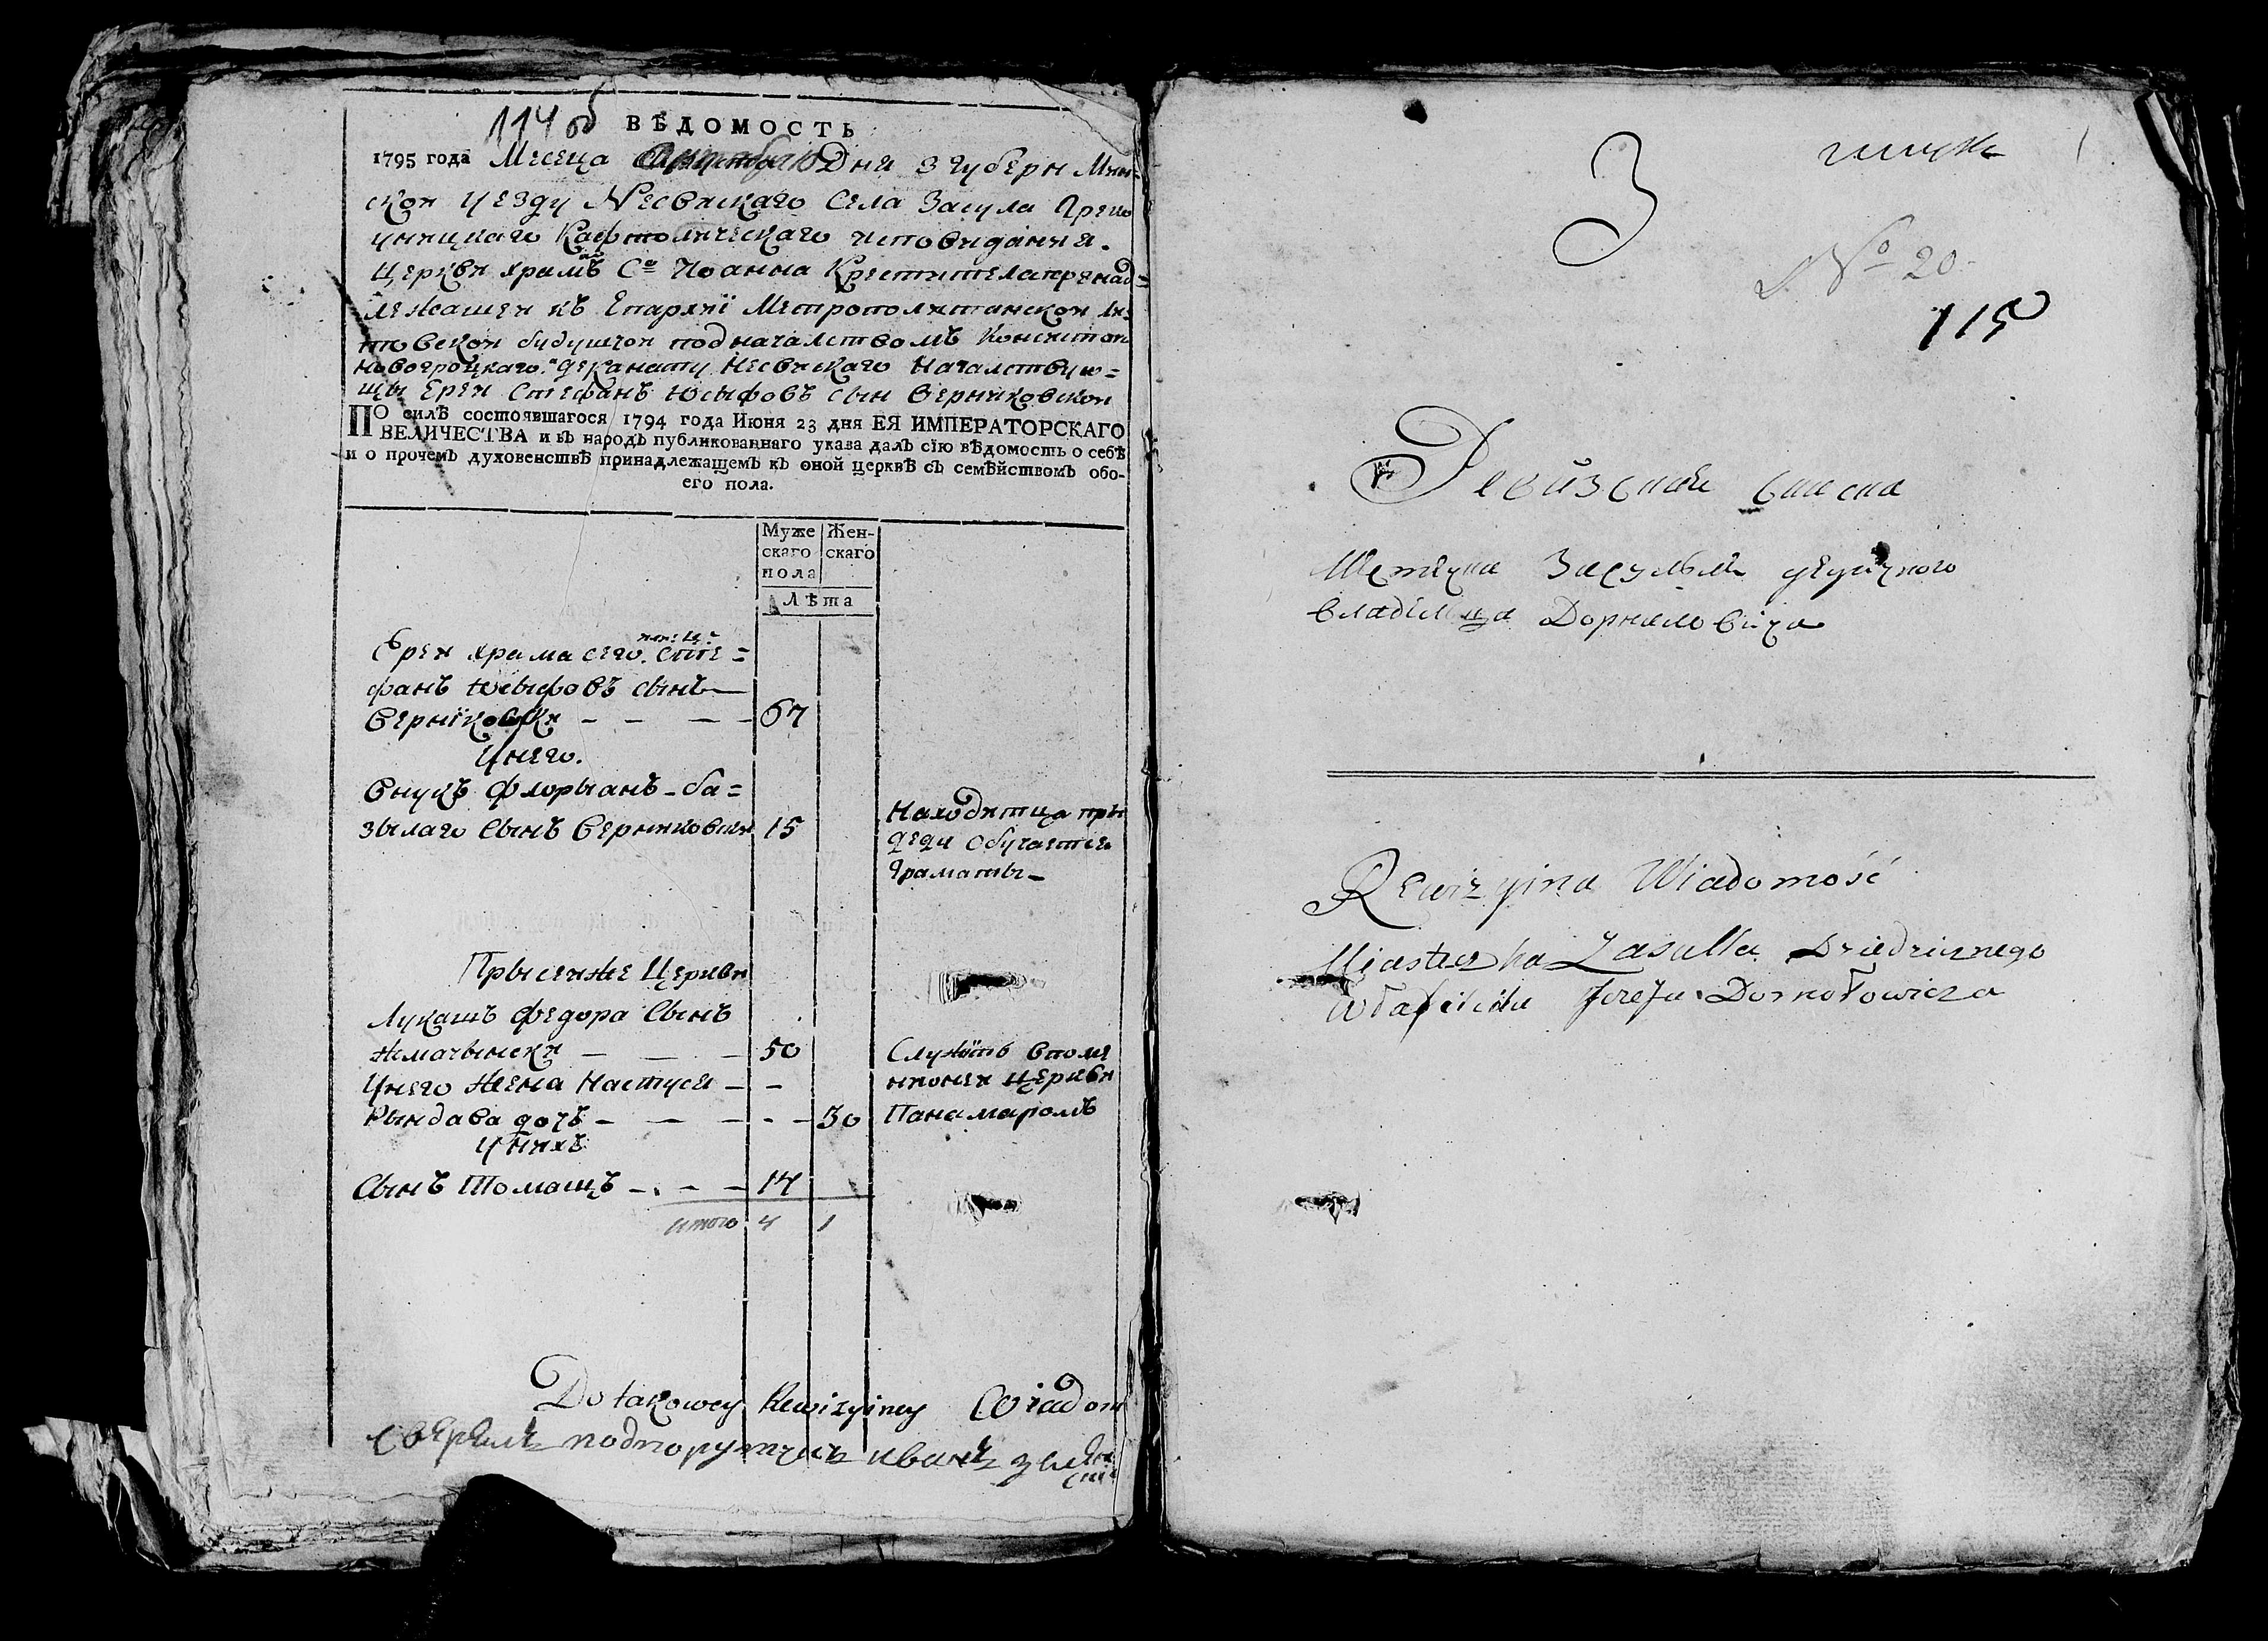 114 об
ВѢДОМОСТЬ
1795 года Месеца Дня 3 губерн Мин-
скон уезду Несвискаго Села Засула Греко
уницкаго Кафтолическаго исповидання.
Церкви храмъ Сᵒ Иоанна Крестителапренад=
лежащен къ Епархиї Метрополитанскон Ли-
товскон будушчои подначалством Консистои
Новогроцкаго. деканату Несвискаго Началствую=
щы Ерен Стефанъ Юсыфовъ сын Берниковскои
ПО силѣ состоявшагося 1794 года Июня 23 дня ЕЯ ИМПЕРАТОРСКАГО
ВЕЛИЧЕСТВА и въ народъ публикованнаго указа далъ сїю вѣдомость о себѣ
и о прочемъ духовенствѣ принадлежащемъ къ оной церквѣ съ семѣйствомъ обо-
его пола.
Муже Жен-
скаго скаго
пола
Лѣта
Ерен храма сего. Сте=
фанъ Юсыфовъ сынъ
Берніковски 67
Унего.
Внукъ Флорыанъ - ба=
зылаго Сынъ Берниковски 15 Находитца при
деди Обучается
Граматы
Прысенже Церкви
Лукашъ Федора Сынъ
Жмачынски 50 Служитъ впоме
Унего Жена Настуся нионен Церкви
Рындава дочъ 30 Панамаромъ
Унихъ
Сынъ Томашъ 14
итого 4 1
Do takowey Rewizyiney Wiadom
сверялъ подпоручикъ иванъ
3
№ 20
115
Ревизская
Местечка Засулья дедичного
владельца Дорналовича
Rewizyina Wiadomość
Miasteczka Zasulla Dziedzicznego
Jozefa Dornołowicza